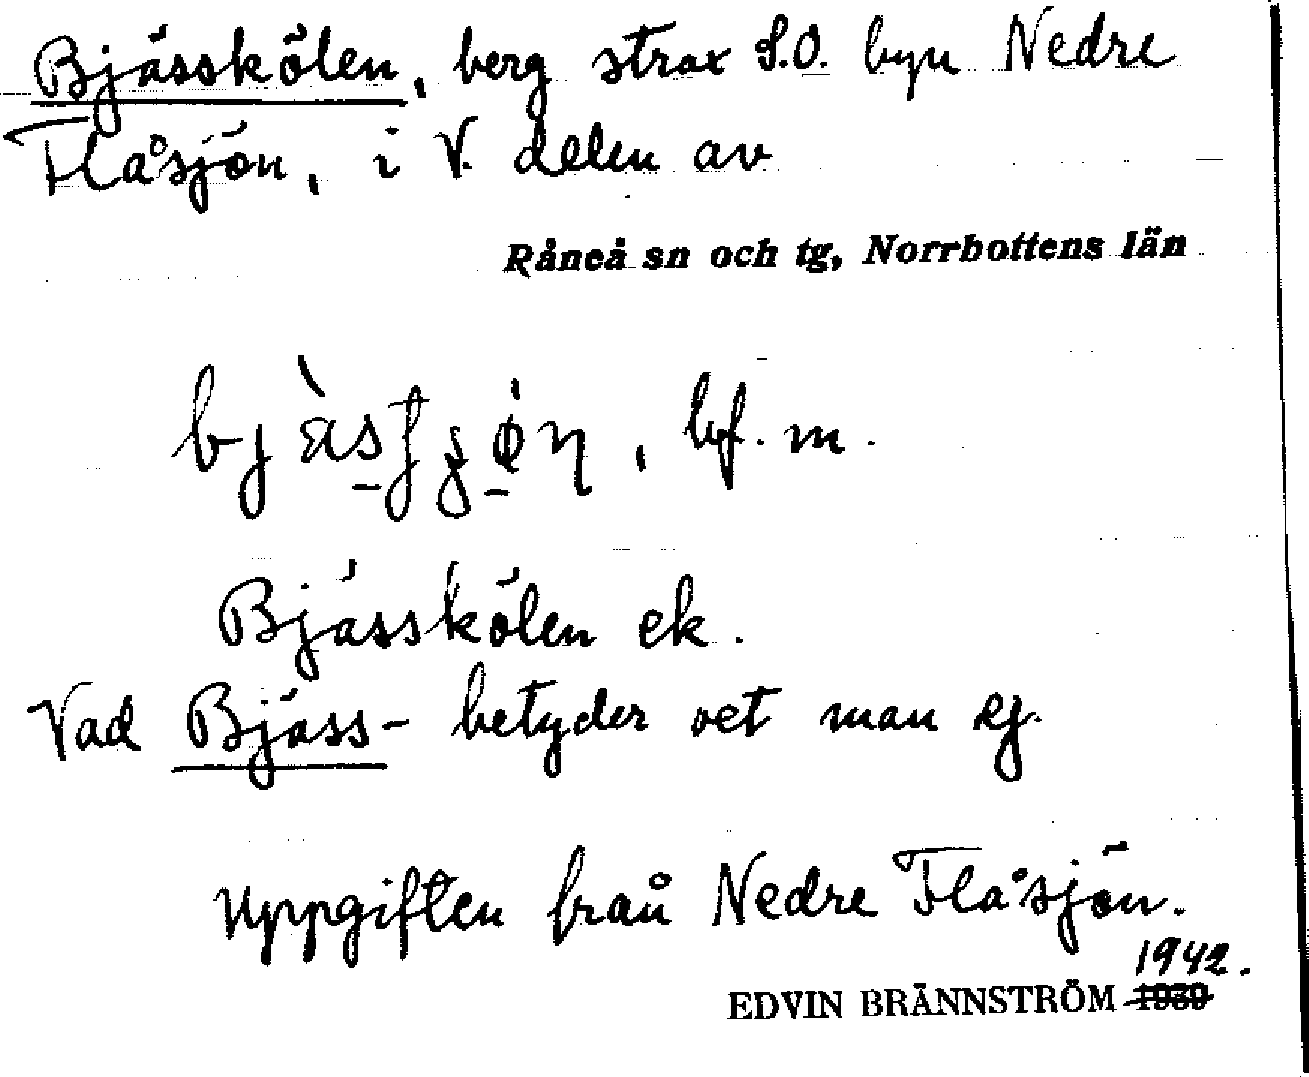 Bjässkölen, berg strax S.O. byn Nedre
Flåsjön, i V. delen av
Råneå sn och tg, Norrbottens län
bf. m.
Bjässkölen ek.
Vad Bjäss- betyder vet man ej.
Uppgiften från Nedre Flåsjön.
1942.
EDVIN BRÄNNSTRÖM 1939